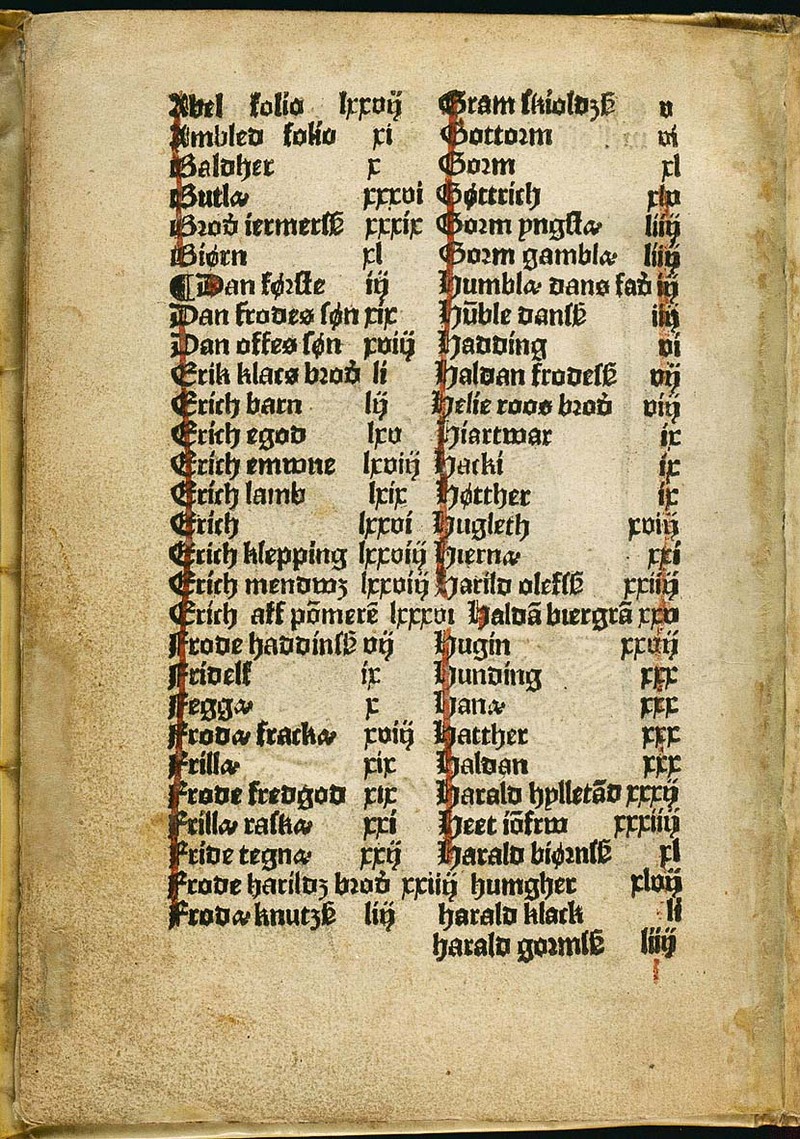 Abel folio lxxvij
Ambled folio xi
Baldher x
Butlæ xxxvi
Brod iermersß xxxix
Biørn xl
¶ Dan første iij
Dan frodes søn xix
Dan offes søn xviij
Erik klacs brod li
Erich barn lij
Erich egod lxv
Erich emwne lxviij
Erich lamb lxix
Erich lxxvi
Erich klepping lxxviij
Erich mendwꝫ lxxviij
Erich aff põmerē lxxxvi
Frode haddinsß vij
Fridelf ix
Feggæ x
Frodæ frackæ xviij
Frillæ xix
Frode fredgod xix
Frillæ raskæ xxi
Fride tegnæ xxij
Frode harildꝫ brod xxiiij
Frodæ knutꝫß liij
Gram skioldꝫß v
Gottorm vi
Gorm xl
Gøttrich xlv
Gorm yngstæ liiij
Gorm gamblæ liiij
Humblæ dans fad iij
Hūble dansß iiij
Hadding vi
Haldan frodesß vij
Helie roos brod viij
Hiartwar ix
Hacki ix
Høtther ix
Hugleth xviij
Hiernæ xxi
Harild olefsß xxiiij
Haldā biergrā xxv
Hugin xxvij
Hunding xxx
Hanæ xxx
Hatther xxx
Haldan xxx
Harald hylletãd xxxij
Heet iõfrw xxxiiij
Harald biørnsß xl
humgher xlvij
harald klack li
harald gormsß liiij